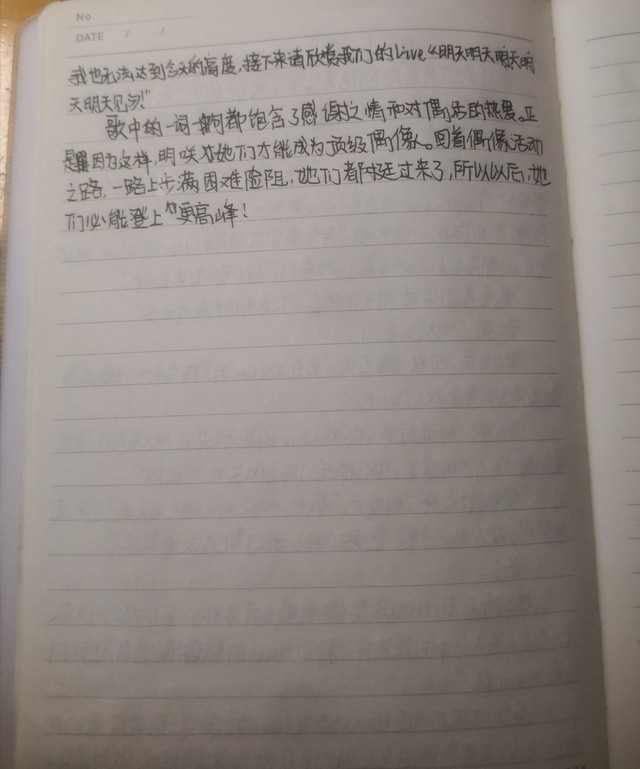 No.
DATE / /
我也无法达到今天的高度,接下来请欣赏我们的Live“明天明天明天明
天明天见吧!”
歌中的一词一句都饱含了感谢之情和对偶活的热爱。正
是因为这样,明咲才她们才能成为顶级偶像。回首偶像活动
之路,一路上步满困难险阻,她们都挺过来了,所以以后,她
们必能登上更高峰!